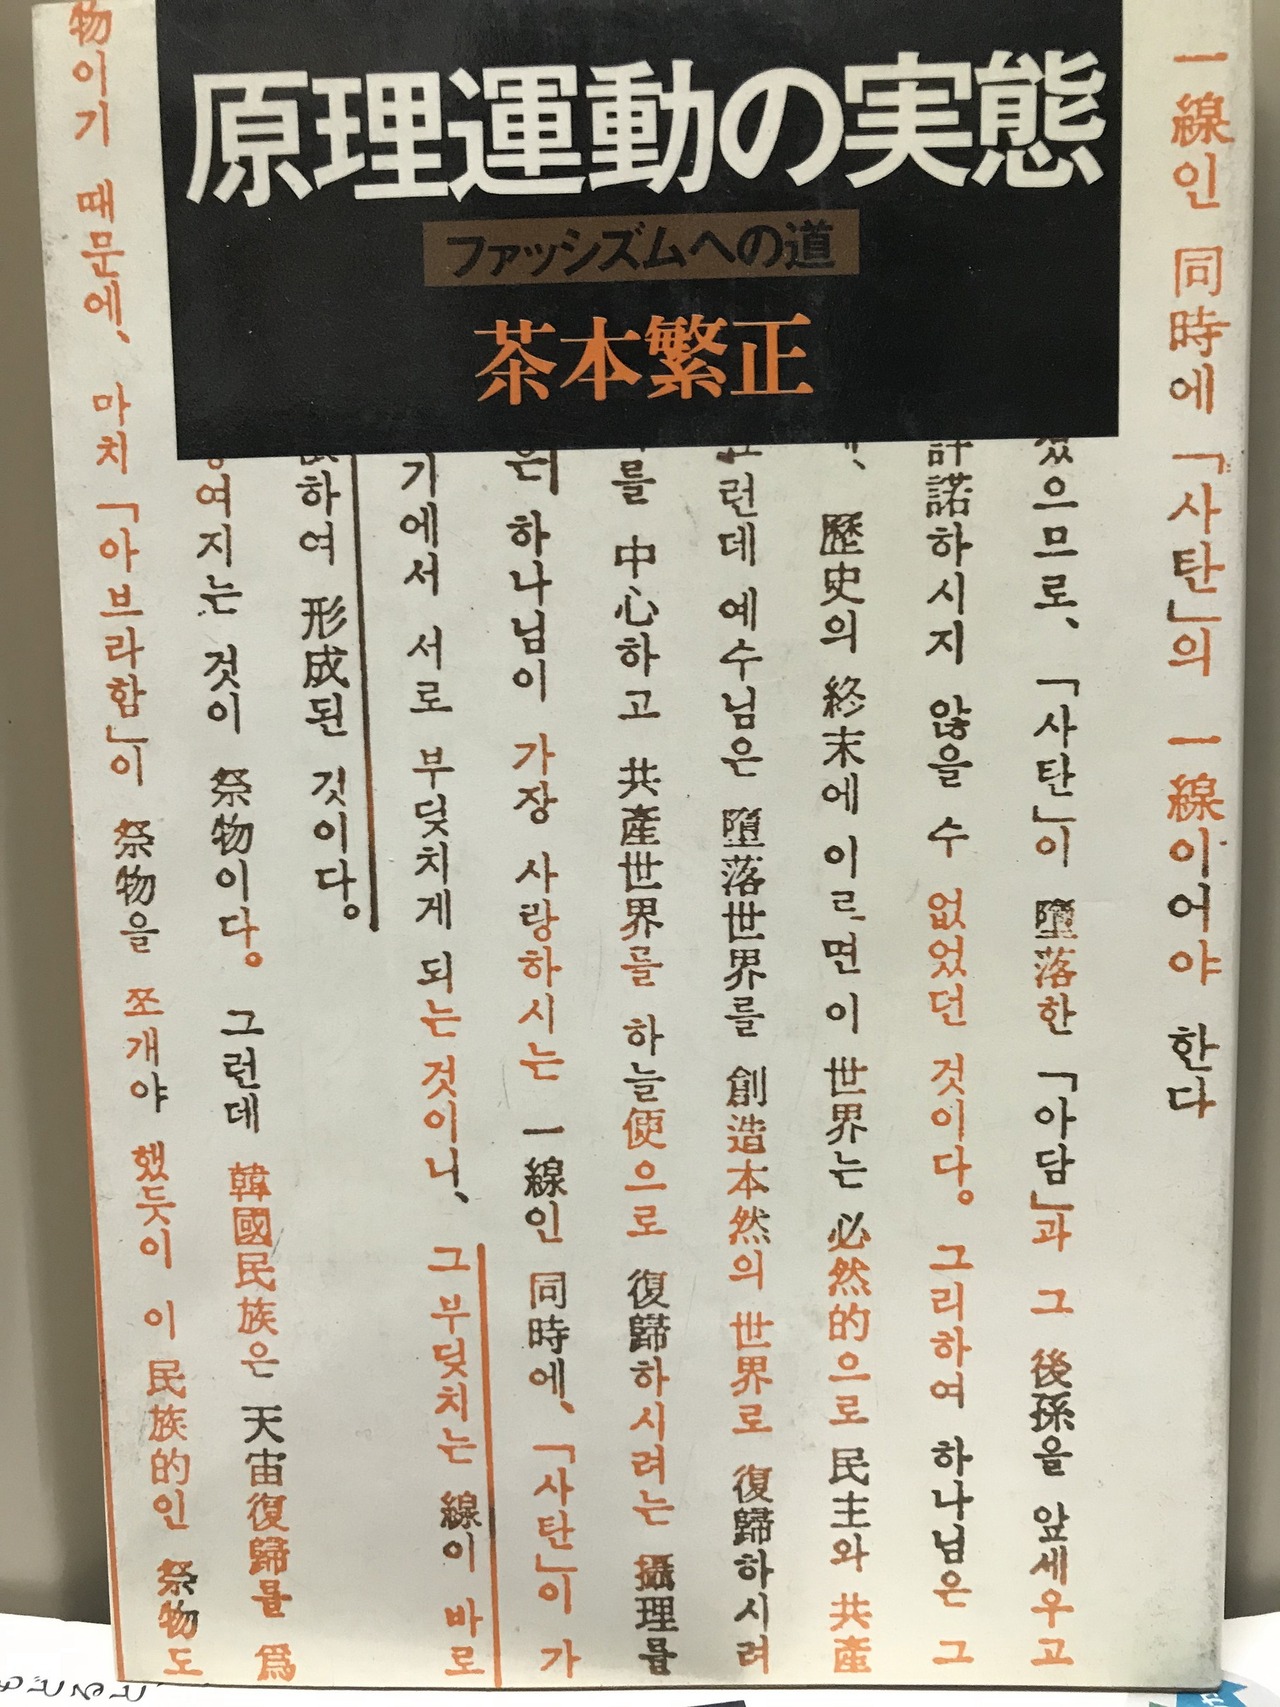 原理運動の実態
ファッシズムへの道
茶本繁正
一線인 同時에 「사탄」의 一線이어야 한다
으므로、「사탄」이 墮落한 「아담」과 그 後孫을 앞세우고
許諾하시지 않을 수 없었던 것이다。 그리하여 하나님은 그
、 歷史의 終末에 이르면 이 世界는 必然的으로 民主와 共產
런데 예수님은 墮落世界를 創造本然의 世界로 復歸하시려
를 中心하고 共產世界를 하늘便으로 復歸하시려는 攝理를
은 하나님이 가장 사랑하시는 一線인 同時에、「사탄」이 가
기에서 서로 부딪치게 되는 것이니、 그 부딪치는 線이 바로
하여 形成된 것이다。
여지는 것이 祭物이다。 그런데 韓國民族은 天宙復歸를 爲
物이기 때문에、 마치 「아브라함」이 祭物을 쪼개야 했듯이 이 民族的인 祭物도